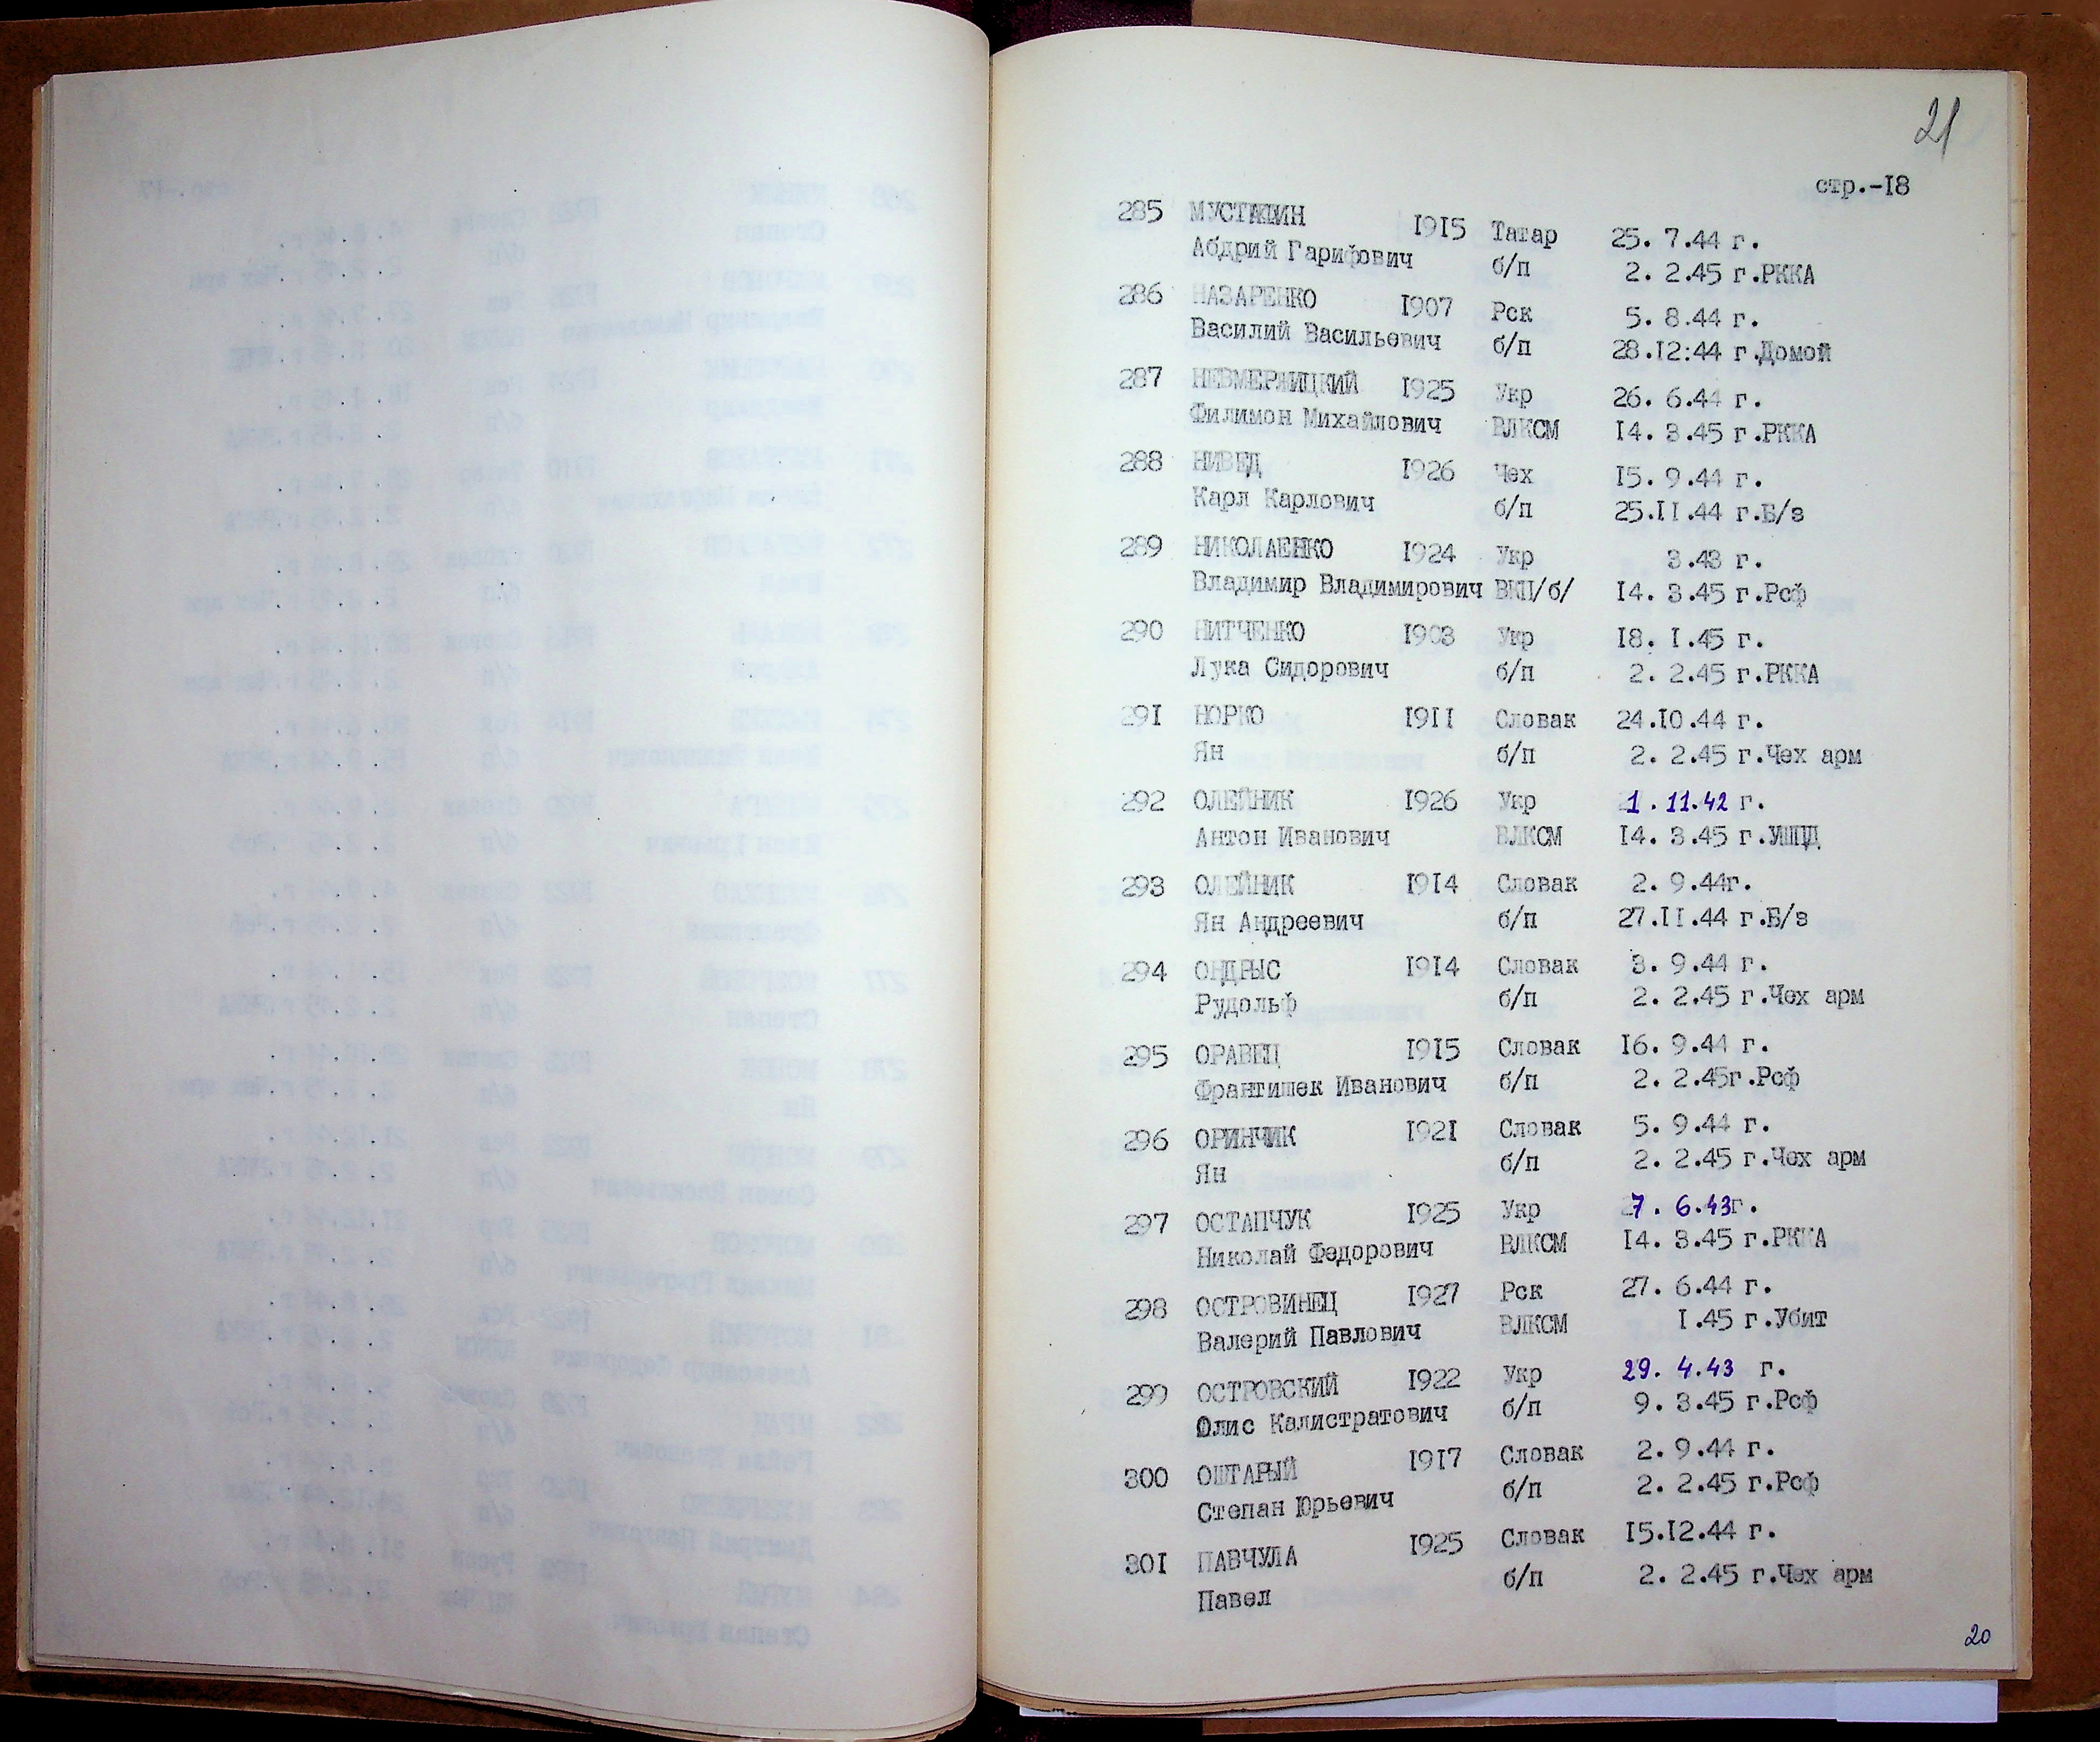 21
стр.-18
285 МУСТАКИН 1915 Татар 25. 7.44 г.
Абдрий Гарифович б/п 2. 2.45 г.РККА
286 НАЗАРЕНКО 1907 Рск 5. 8.44 г.
Василий Васильевич б/п 28.12:44 г.Домой
287 НЕВМЕРЖИЦКИЙ 1925 Укр 26. 6.44 г.
Филимон Михайлович ВЛКСМ 14. 3.45 г.РККА
288 НИВЕД 1926 Чех 15. 9.44 г.
Карл Карлович б/п 25.11.44 г.Б/з
289 НИКОЛАЕНКО 1924 Укр 3.43 г.
Владимир Владимирович ВКП/б/ 14. 3.45 г.Рсф
290 НИТЧЕНКО 1903 Укр 18. 1.45 г.
Лука Сидорович б/п 2. 2.45 г.РККА
291 НОРКО 1911 Словак 24.10.44 г.
Ян б/п 2. 2.45 г.Чех арм
292 ОЛЕЙНИК 1926 Укр 1.11.42 г.
Антон Иванович ВЛКСМ 14. 3.45 г.УШПД
293 ОЛЕЙНИК 1914 Словак 2. 9.44г.
Ян Андреевич б/п 27.11.44 г.Б/з
294 ОНДРЫС 1914 Словак 3. 9.44 г.
Рудольф б/п 2. 2.45 г.Чех арм
295 ОРАВЕЦ 1915 Словак 16. 9.44 г.
Франтишек Иванович б/п 2. 2.45г.Рсф
296 ОРИНЧИК 1921 Словак 5. 9.44 г.
Ян б/п 2. 2.45 г.Чех арм
297 ОСТАПЧУК 1925 Укр 7. 6.43г.
Николай Федорович ВЛКСМ 14. 3.45 г.РККА
298 ОСТРОВИНЕЦ 1927 Рск 27. 6.44 г.
Валерий Павлович ВЛКСМ 1.45 г.Убит
299 ОСТРОВСКИЙ 1922 Укр 29. 4.43 г.
Олис Калистратович б/п 9. 3.45 г.Рсф
300 ОШТАРЫЙ 1917 Словак 2. 9.44 г.
Степан Юрьевич б/п 2. 2.45 г.Рсф
301 ПАВЧУЛА 1925 Словак 15.12.44 г.
Павел б/п 2. 2.45 г.Чех арм
20